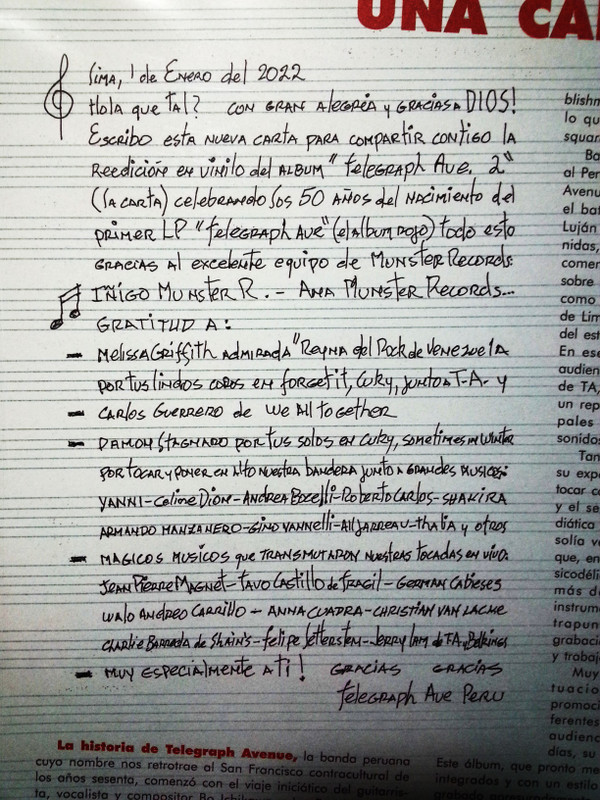 UNA CA
Lima, 1 de Enero del 2022
Hola que tal? con gran alegría y gracias a DIOS!
Escribo esta nueva carta para compartir contigo la
Reedición en vinilo del album "Telegraph Ave. 2"
(la carta) celebrando los 50 años del nacimiento del
primer LP "Telegraph Ave" (el album rojo) todo esto
gracias al excelente equipo de Munster Records:
Iñigo Munster R. - Ana Munster Records...
GRATITUD A:
- Melissa Griffith admirada "Reyna del Rock de Venezuela
por tus lindos coros en forget it, Cuky, junto a T.A. y
- Carlos Guerrero de We All Together
- Ramon Stagnaro por tus solos en Cuky, sometimes in winter
por tocar y poner en alto nuestra bandera junto a grandes musicos:
Yanni - Celine Dion - Andrea Bocelli - Roberto Carlos - Shakira
Armando Manzanero - Gino Vannelli - Al Jarreau - Thalia y otros
- Magicos musicos que transmutaron nuestras tocadas en vivo:
Jean Pierre Magnet - Tavo Castillo de fragil - German Cabieses
Walo Andreo Carrillo - Anna Cuadra - Christian Van Lacke
Charlie Barrada de Shain's - Felipe - Jerry Lam de TA, Belkings
- Muy especialmente a ti! Gracias Gracias
Telegraph Ave Peru
La historia de Telegraph Avenue, la banda peruana
cuyo nombre nos retrotrae al San Francisco contracultural de
los años sesenta, comenzó con el viaje iniciático del guitarris-
ta, vocalista y compositor Bo Ichikawa
blishm
lo qu
squar
Ba
al Per
Avenu
el bat
Luján
nidas,
comer
sobre
como
de Lim
del est
En ese
audien
de TA,
un rep
pales
sonidos
Tan
su expe
tocar co
y el se
diática
solía v
que, en
sicodéli
más d
instrum
trapun
grabaci
y trabaj
Muy
tuacio
promoci
ferentes
audienc
días, su
Este álbum, que pronto me
integrados y con un estilo